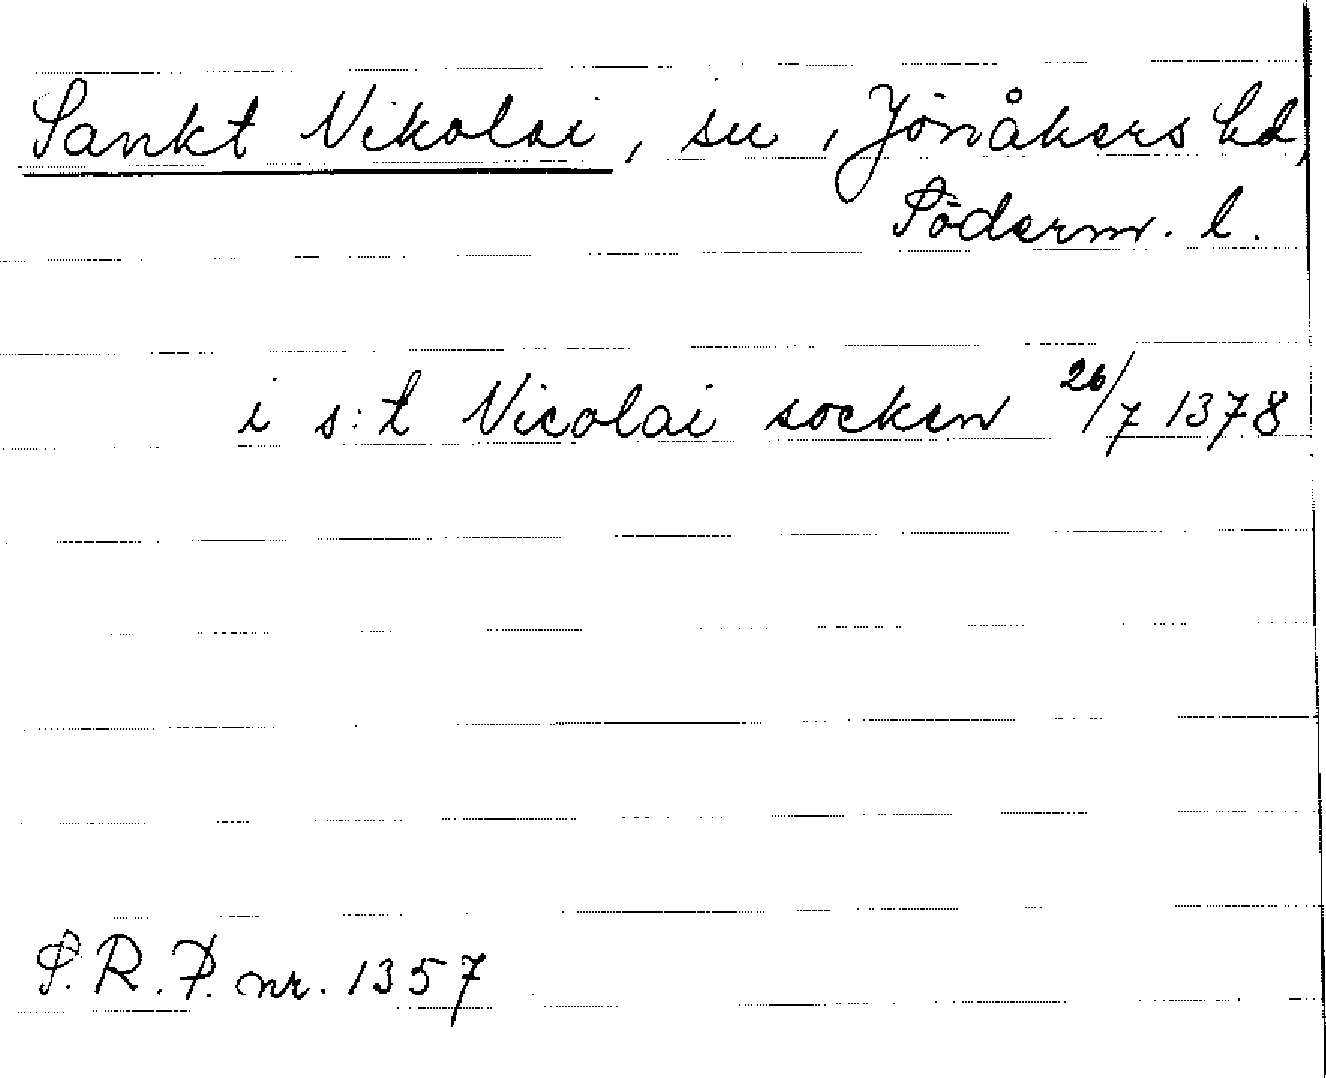 Sankt Nikolai, sn, Jönåkers hd,
Söderm. l.
i s:t Nicolai socken 26/7 1378
S.R.P. nr. 1357